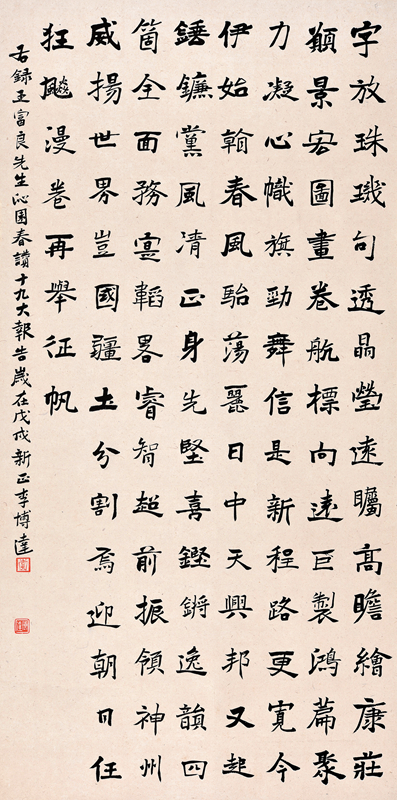 字放珠璣句透晶瑩遠矚高瞻繪康莊
願景宏圖畫卷航標向遠巨製鴻篇聚
力凝心幟旗勁舞信是新程路更寬今
伊始翰春風駘蕩麗日中天興邦又起
錘鐮黨風清正身先堅喜鏗鏘逸韻四
箇全面務寔韜畧睿智超前振領神州
威揚世界豈國疆土分割焉迎朝日任
狂飈漫卷再舉征帆
右録王富良先生沁園春讚十九大報告歲在戊戌新正李博達